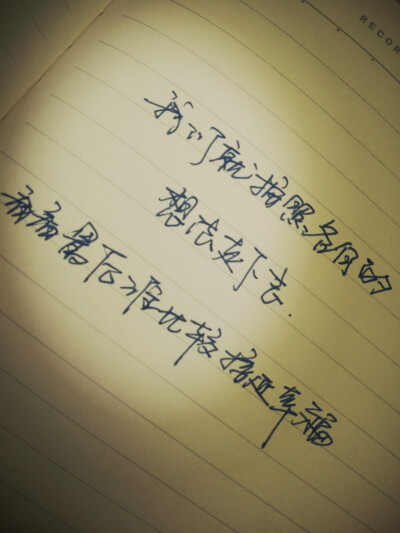 RECOR
我们就按照各自的
想法走下去.
看看最后谁比较接近幸福